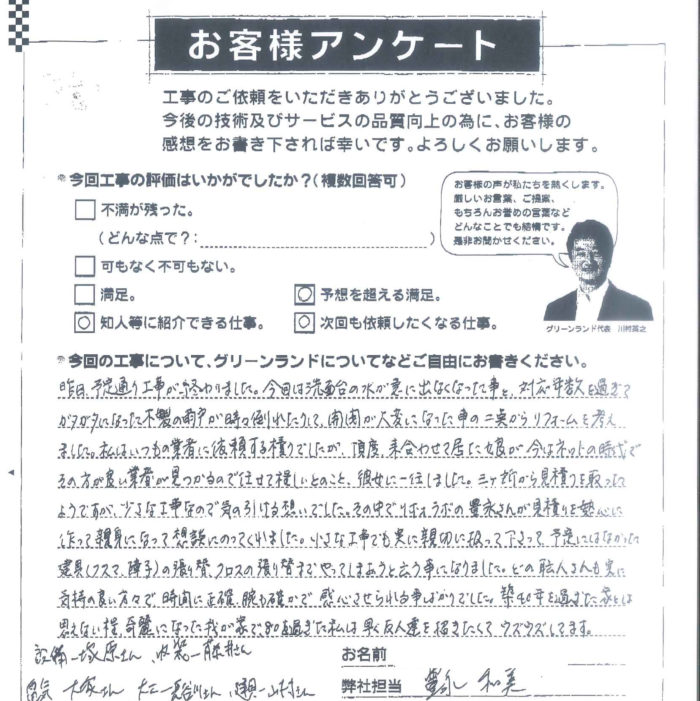 お客様アンケート
工事のご依頼をいただきありがとうございました。
今後の技術及びサービスの品質向上の為に、お客様の
感想をお書き下されば幸いです。よろしくお願いします。
今回工事の評価はいかがでしたか?(複数回答可)
不満が残った。
(どんな点で?: )
可もなく不可もない。
満足。
予想を超える満足。
知人等に紹介できる仕事。
次回も依頼したくなる仕事。
お客様の声が私たちを熱くします。
厳しいお言葉、ご提案、
もちろんお誉めの言葉など
どんなことでも結構です。
是非お聞かせください。
グリーンランド代表 川村英之
今回の工事について、グリーンランドについてなどご自由にお書きください。
昨日、予定通り工事が終わりました。今回は洗面台の水が急に出なくなった事と、対応年数を過ぎて
ガタガタになった木製の雨戸が時々倒れたりして、開閉が大変になった事の二点からリフォームを考え
ました。私はいつもの業者に依頼する積りでしたが、丁度、来合わせて居た娘が今はネットの時代で
その方が良い業者が見つかるので任せて欲しいとのこと、彼女に一任しました。三ヶ所から見積りを取った
ようですが、小さな工事なので気の引ける想いでした。その中でリフォラボの豊永さんが見積りを熱心に
作って親身になって相談にのってくれました。小さな工事でも実に親切に扱って下さって、予定にはなかった
建具(フスマ、障子)の張り替、クロスの張り替までやってしまおうと云う事になりました。どの職人さんも実に
気持の良い方々で、時間に正確、腕も確かで感心させられる事ばかりでした。築40年を過ぎた家とは
思えない程、奇麗になった我が家で、80を過ぎた私は早く友人達を招きたくてウズウズしてます。
設備-塚原さん、内装-藤井さん
電気 大塚さん 大工-長谷川さん、建具-山村さん
お名前
弊社担当 豊永 和美